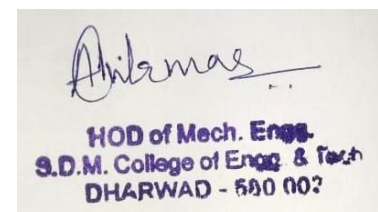 HOD of Mech. Engg.
S.D.M. College of Engg. & Tech
DHARWAD - 580 002